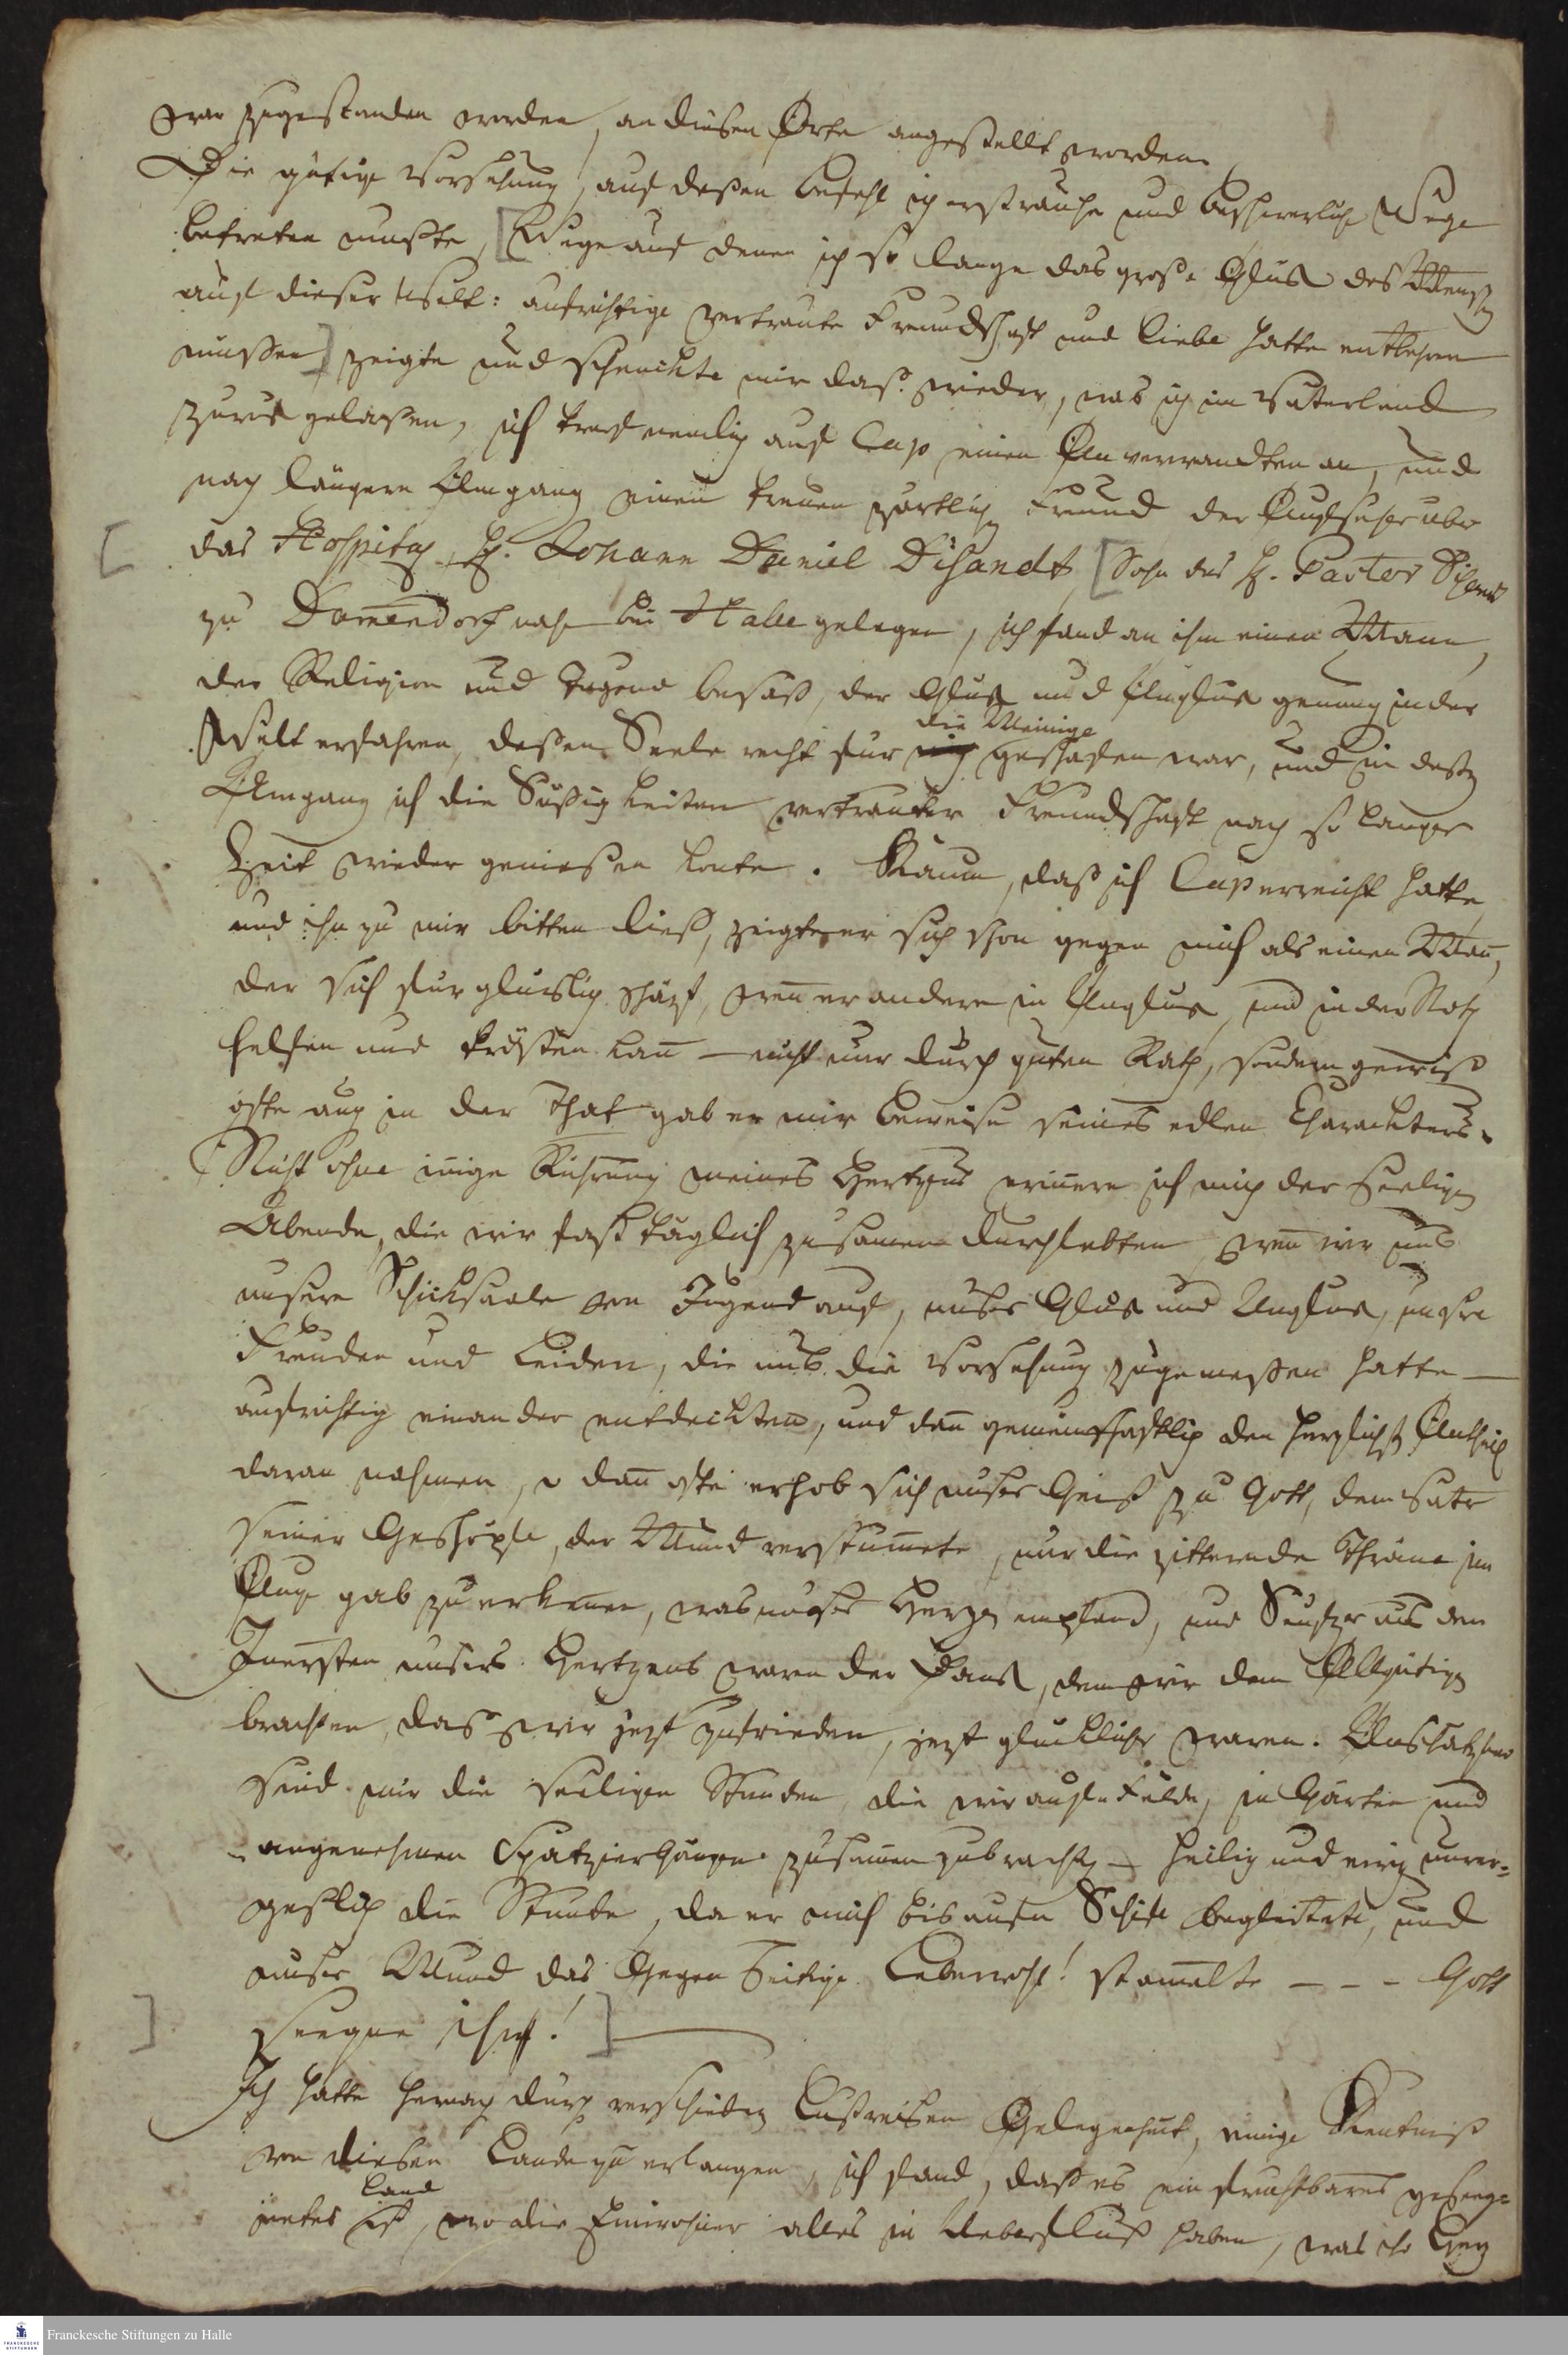 zwar zugestanden worden, an diesen Orte angestellt worden.
Die gütige Vorsehung, auf deßen Befehl ich erst rauhe und beschwerliche Wege
betreten mußte, [Wege auf denen ich so lange das große Glük des Mensch
auf dieser Welt: aufrichtige vertraute Freundschaft und Liebe hatte entbehren
müßen] zeigte und schenckte mir das wieder, was ich im Vaterland
zurük gelaßen, ich traf nemlich auf Cap einen Anverwandten an, und
nach längern Umgang einen treuen zärtlich Freund der Aufseher über
das Hospital, H. Johann Daniel Disandt, [Sohn des H. Pastor Disandt
zu Domendorf nahe bei Halle gelegen, ich fand an ihm einen Mann,
der Religion und Tugend besaß, der Glük und Unglük genung in der
die Meinige
Welt erfahren, deßen Seele recht für mich geschafen war, und in deßen
Umgang ich die Süßigkeiten vertrauter Freundschaft nach so langer
Zeit wieder genießen konte. Kaum, daß ich Cap erreicht hatte,
und ihn zu mir bitten ließ, zeigte er sich schon gegen mich als einen Man̅,
der sich für glüklich schäzt, wen̅ er andere in Unglük, und in der Noth
helfen und trösten kan̅ – nicht nur durch guten Rath, sondern gewiß
öfte auch in der That gab er mir Beweise seines edlen Charackters.
Nicht ohne in̅ige Rührung meines Hertzens erin̅ere ich mich der seeligen
Abende, die wir fast täglich zusamen durchlebten, wen̅ wir uns
unsere Schicksaale von Jugend auf, unser Glük und Unglük, unsre
Freuden und Leiden, die uns die Vorsehung zugemeßen hatte –
aufrichtig einander entdeckten, und dan̅ gemeinschaftlich den herzlichst Antheil
daran nahmen, o dan̅ öfte erhob sich unser Geist zu Gott, dem Vater
seiner Geschöpfe, der Mund verstum̅ete, nur die zitternde Thräne im
Auge gab zu erkennen, was unser Herze empfand, und Seufzer aus dem
In̅ersten unsers Hertzens waren der Dank, den wir dem Allgütigen
brachten, daß wir jezt zufrieden, jezt glücklicher waren. Unschätzbar
sind mir die seeligen Stunden, die wir aufn Felde, in Gärten und
angenehmen Spatziergängen zusam̅en zubrachten – heilig und ewig unver=
geßlich die Stunde, da er mich bis aufn Schife begleitete, und
unser Mund das Gegenseitige Lebewohl! stam̅elte – – – Gott
seegne ihn!]
Ich hatte hernach durch verschieden Lustreisen Gelegenheit, einige Kentniß
von diesen Lande zu erlangen, ich fand, daß es ein fruchtbares geseeg=
Land
netes ist, wo die Einwohner alles in Ueberfluß haben, was ihr Herz
Franckesche Stiftungen zu Halle